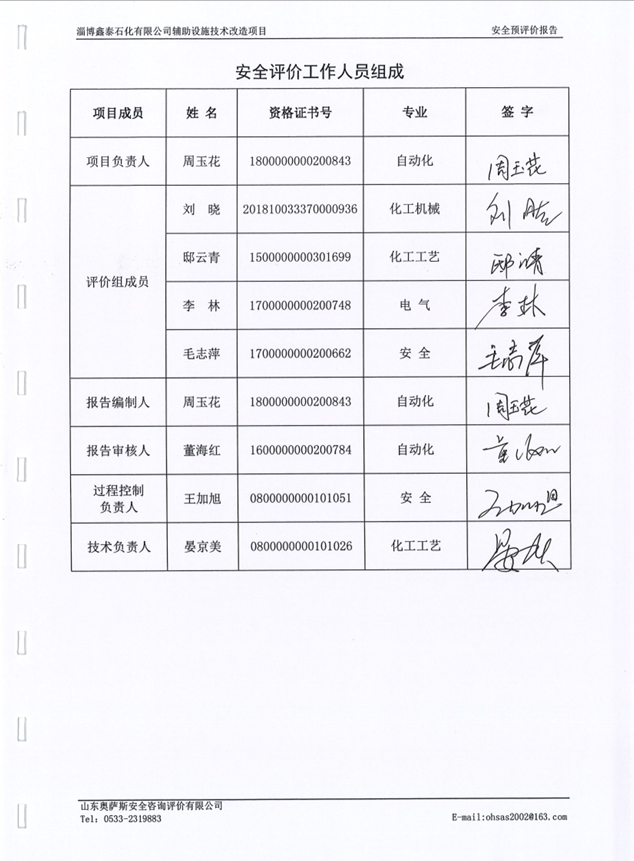 淄博鑫泰石化有限公司辅助设施技术改造项目 安全预评价报告
安全评价工作人员组成
项目成员 姓 名 资格证书号 专业 签 字
项目负责人 周玉花 1800000000200843 自动化 周玉花
刘 晓 201810033370000936 化工机械
邸云青 1500000000301699 化工工艺
评价组成员
李 林 1700000000200748 电 气 李林
毛志萍 1700000000200662 安 全 毛志萍
报告编制人 周玉花 1800000000200843 自动化 周玉花
报告审核人 董海红 1600000000200784 自动化
过程控制
负责人 王加旭 0800000000101051 安 全
技术负责人 晏京美 0800000000101026 化工工艺
山东奥萨斯安全咨询评价有限公司
Tel：0533-2319883 E-mail:ohsas2002@163.com